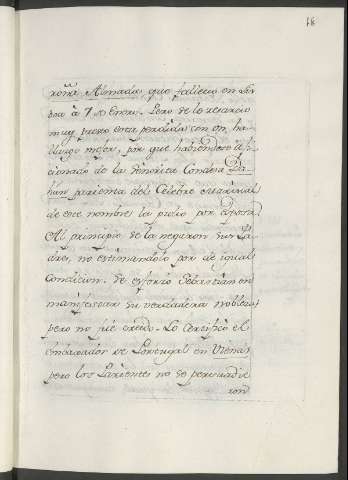 18
roña Almada que fallecio en Lis
boa à 7 de Enero. Pero se lo resarcio
muy presto esta perdida con un ha
llazgo mejor, por que habiendose afi
cionado de la Señorita Condesa
han parienta del Celebre Mariscal
de este nombre la pidio por esposa.
Al principio se la negaron sus Pa
dres, no estimandolo por de igual
condicion. Se esforzó Sebastian en
manifestar su verdadera nobleza,
pero no fué creido. Lo certificó el
embaxador de Portugal en Viena,
pero los Parientes no se persuadie
ron